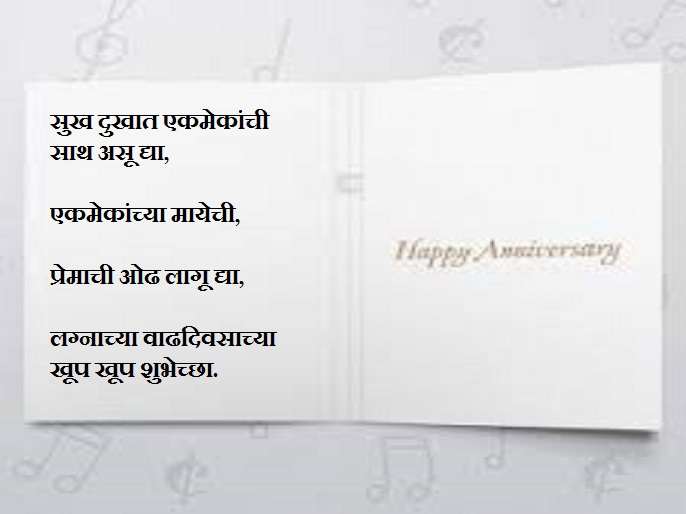 सुख दुखात एकमेकांची
साथ असू द्या,
एकमेकांच्या मायेची,
प्रेमाची ओढ लागू द्या,
लग्नाच्या वाढदिवसाच्या
खूप खूप शुभेच्छा.
Happy Anniversary